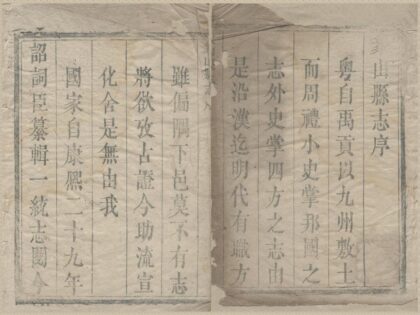 山縣志序
粵自禹貢以九州敷土
而周禮小史掌邦國之
志外史掌四方之志由
是沿漢迄明代有職方
雖偏隅下邑莫不有志
將欲攷古證今助流宣
化舍是無由我
國家自康熙二十九年
詔詞臣纂輯一統志閣今